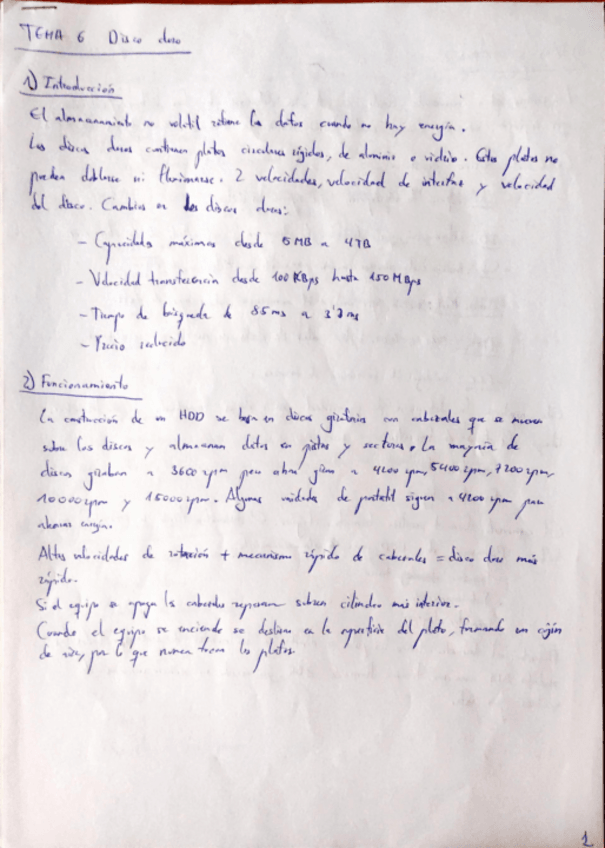 TEMA 6 Disco duro
1) Introducción
El almacenamiento no volátil retiene los datos cuando no hay energía.
Los discos duros contienen platos circulares rígidos, de aluminio o vidrio. Estos platos no
pueden doblarse ni flexionarse. 2 velocidades, velocidad de interfaz y velocidad
del disco. Cambios en los discos duros:
- Capacidades máximas desde 5MB a 4TB
- Velocidad transferencia desde 100 KBps hasta 150 MBps
- Tiempo de búsqueda de 85ms a 3'3ms
- Precio reducido
2) Funcionamiento
La construcción de un HDD se basa en discos giratorios con cabezales que se mueven
sobre los discos y almacenan datos en pistas y sectores. La mayoría de
discos giraban a 3600 rpm pero ahora giran a 4200 rpm, 5400 rpm, 7200 rpm,
10000 rpm y 15000 rpm. Algunas unidades de portatil siguen a 4200 rpm para
ahorrar energía.
Altas velocidades de rotación + mecanismo rápido de cabezales = disco duro más
rápido.
Si el equipo se apaga los cabezales reposan sobre cilindro más interior.
Cuando el equipo se enciende se deslizan en la superficie del plato, formando un cojín
de aire, por lo que nunca tocan los platos.
1